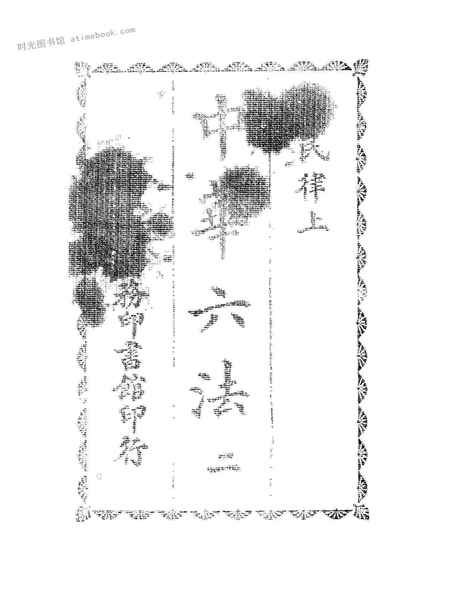 时光图书馆 atimebook.com
民律上
中華六法
二
務印書館印行